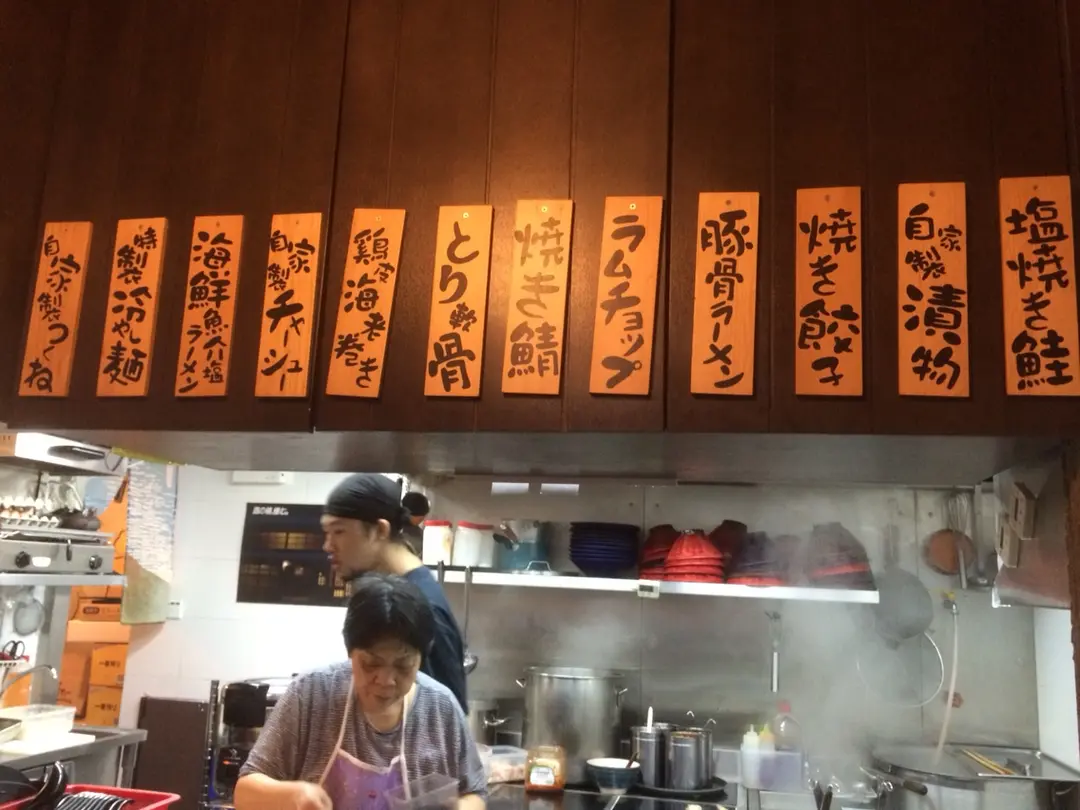 塩焼き鮭
自家製漬物
焼き餃子
豚骨ラーメン
ラムチョップ
焼き鯖
とり軟骨
鶏皮海老巻き
自家製チャーシュー
海鮮魚介塩ラーメン
特製冷やし麺
自家製つくね